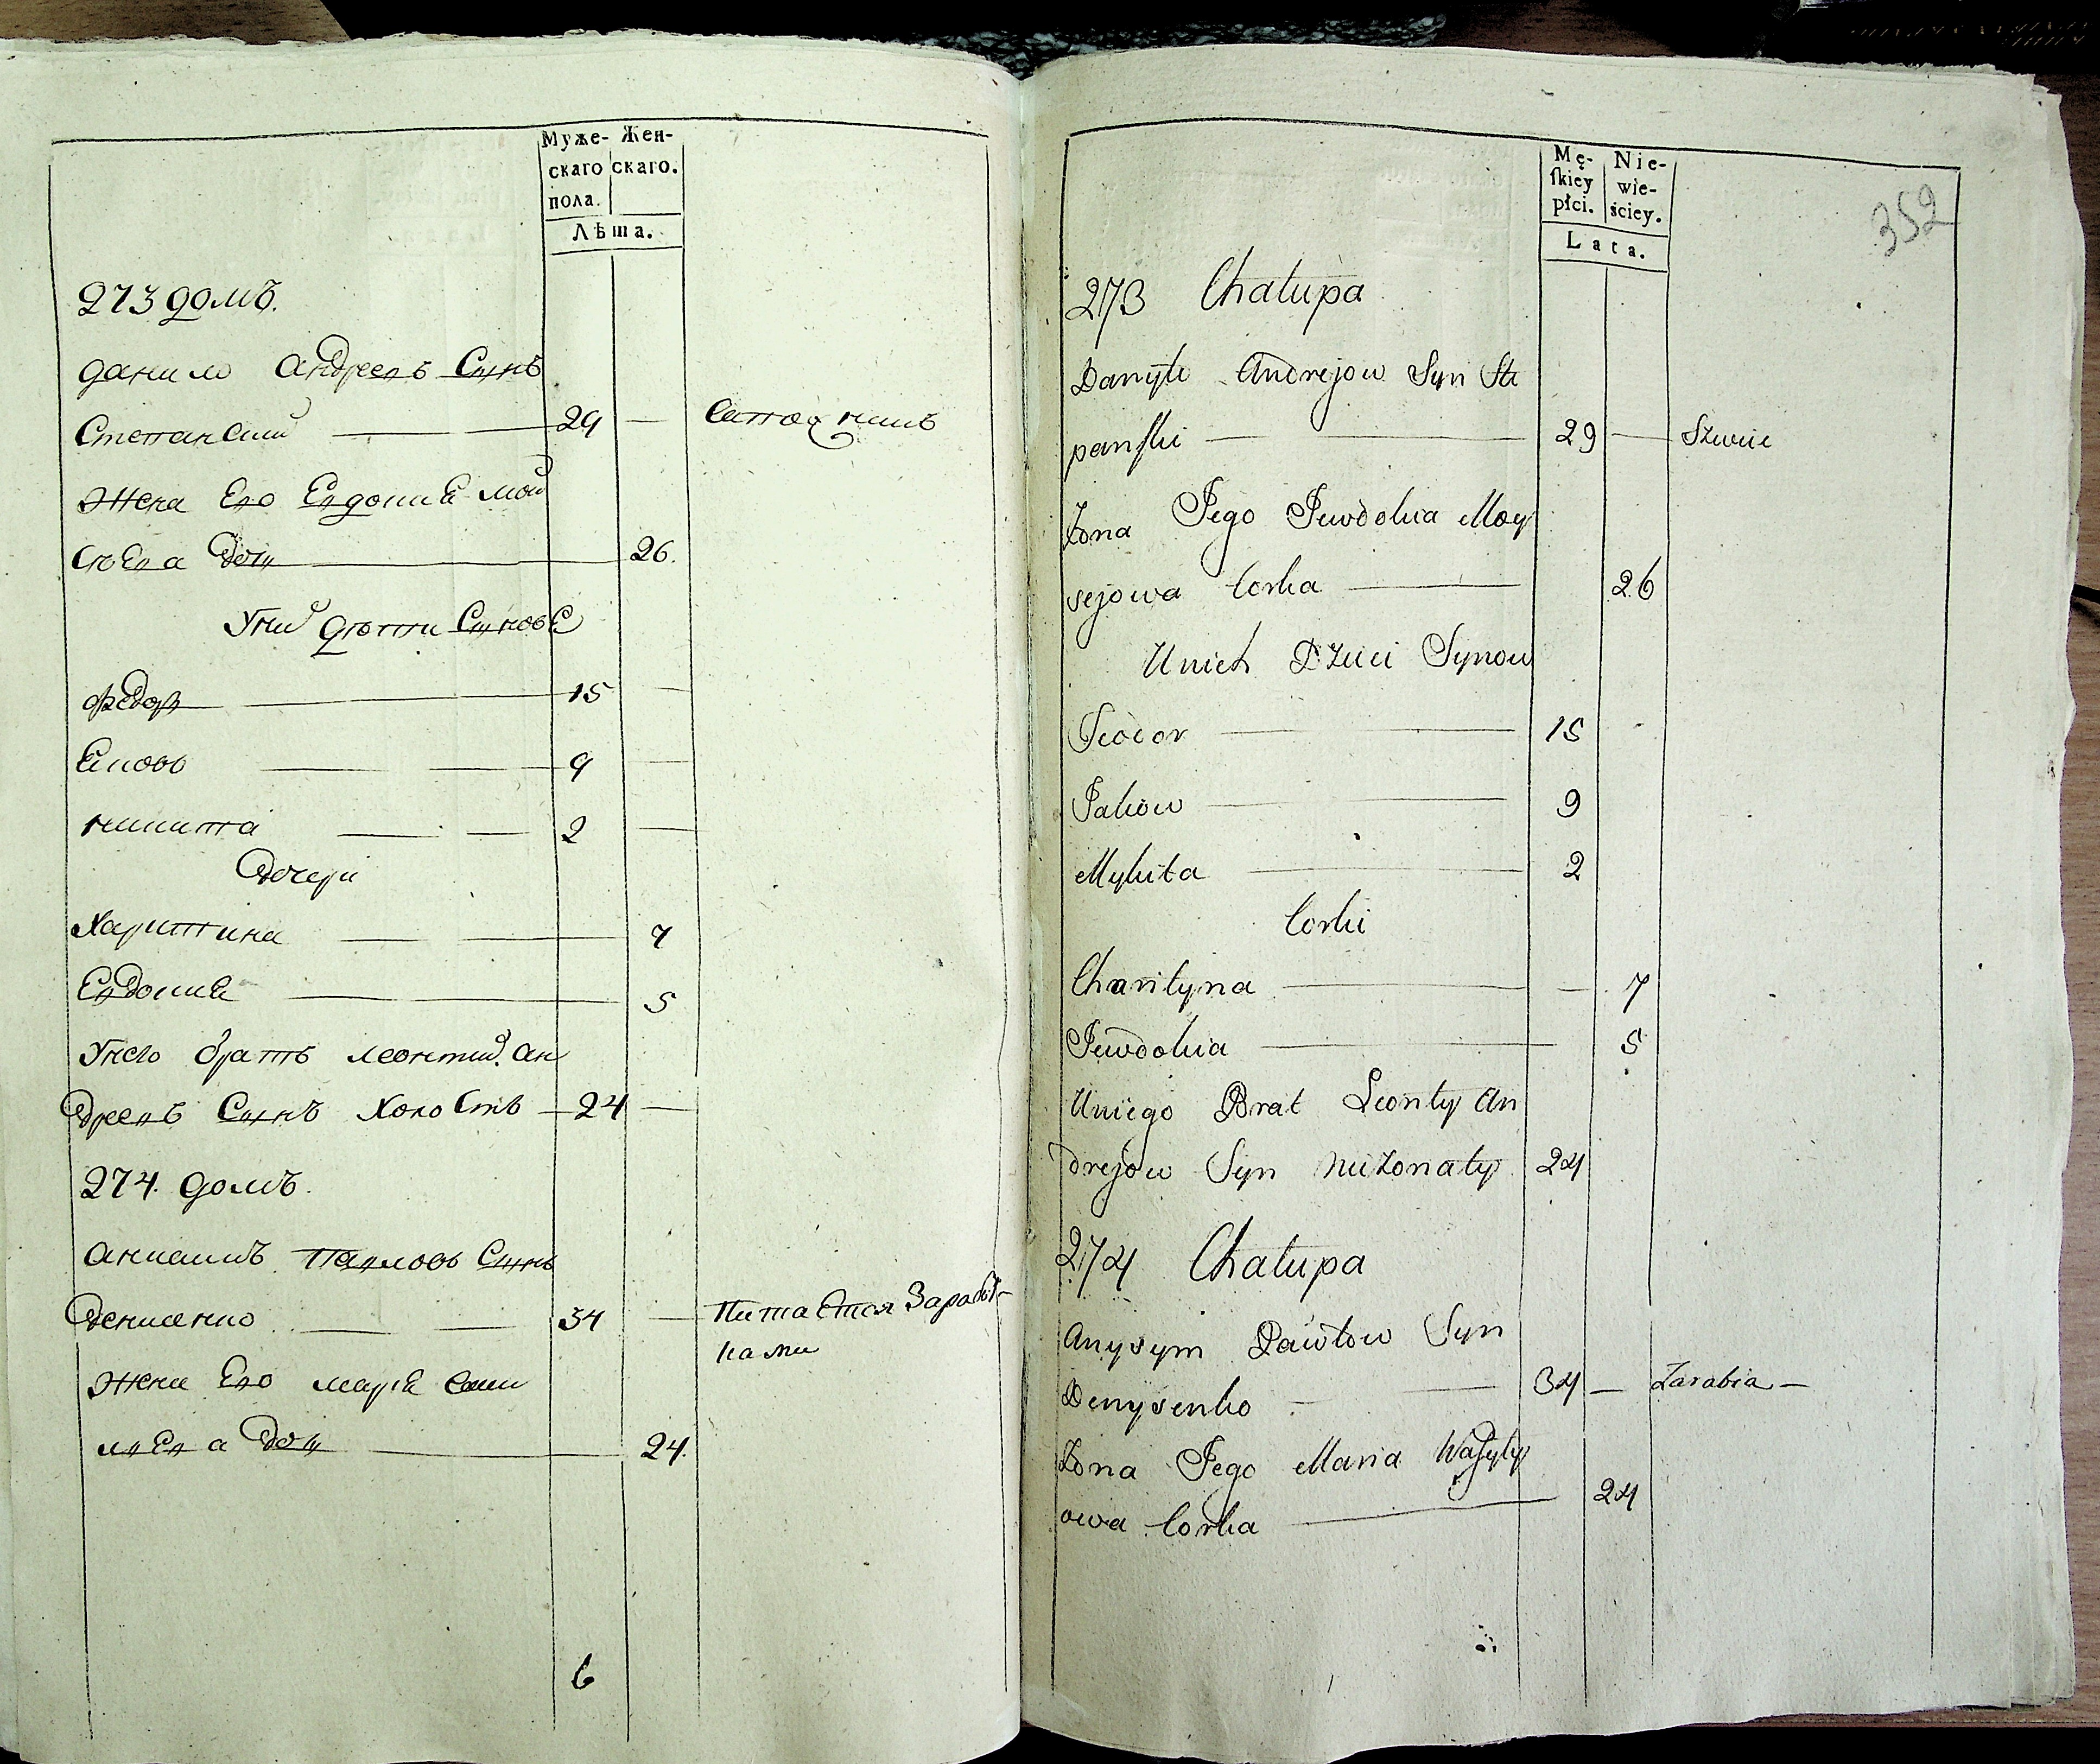 Муже- Жен-
скаго скаго.
пола.
Лѣта.
273 домъ.
данило андреевъ Сынъ
Степанский 29 — Сапожникъ
жена Его Евдокиѣ мой
сѣева дочь 26.
У них дѣти Сыновѣ
федор 15 —
Еков 9 —
никита 2 —
дочери
Харитина 7
Евдокиѣ 5
У него братъ леонтий ан
дреевъ Сынъ Холостъ — 24 —
274. домъ.
анисимъ павловъ Сынъ
денисенко 34 — Питается Заработ-
ками
жена Его мариѣ васи
лѣва дочь 24.
6
352
Mę- Nie-
ſkiey wie-
płci. ściey.
Lata.
273 Chałupa
Danyło Andrejow Syn Ste
panſki — 29 — Szwiec
Żona Jego Jewdokia Moy
sejowa Corka — 26
U nich Dzieci Synow
Feodor — 15
Jakow — 9
Mykita — 2
Corki
Charityna — — 7
Jewdokia — 5
U niego Brat Leonty An
drejow Syn nieżonaty 24
274 Chałupa
Anysym Pawłow Syn
Denysenko — 34 — Zarabia —
Żona Jego Maria Waſyly
owa Corka — 24